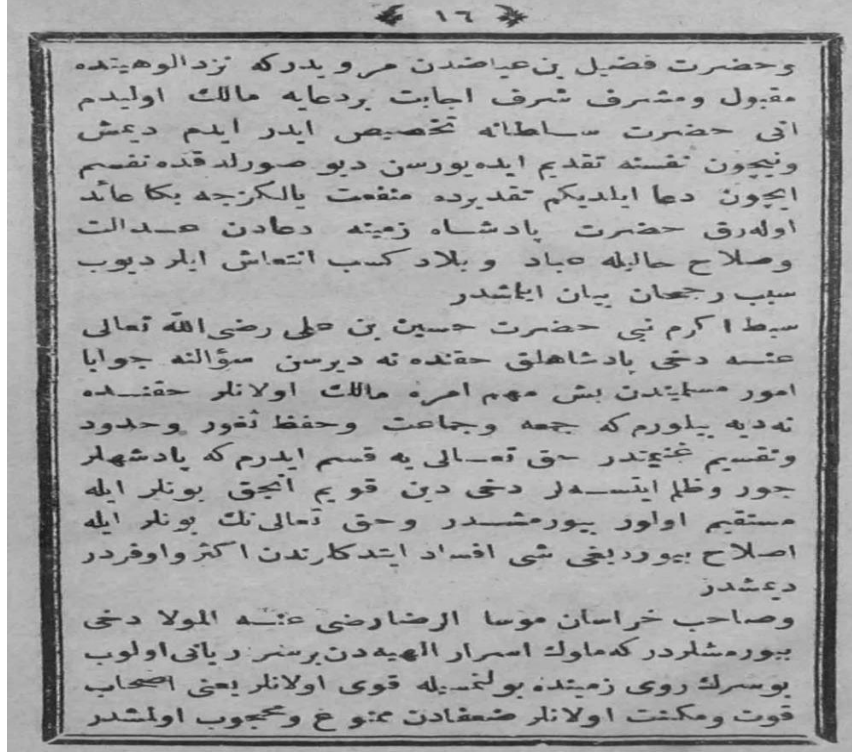 ١٦
وحضرت فضيل بن عياضدن مرويدركه نزد الوهيتده
مقبول ومشرف شرف اجابت بردعايه مالك اوليدم
انى حضرت سلطانه تخصيص ايدر ايدم ديمش
ونيچون نفسنه تقديم ايده‌يورسن ديو صورلدقده نفسم
ايچون دعا ايلديكم تقديرده منفعت يالكزجه بكا عائد
اوله‌رق حضرت پادشاه زمينه دعادن عدالت
وصلاح حاليله عباد وبلاد كسب انتعاش ايلر ديوب
سبب رجحان بيان ايلمشدر
سبط اكرم نبى حضرت حسين بن على رضى الله تعالى
عنه دخى پادشاهلق حقنده نه ديرسن سؤالنه جوابا
امور مسلميندن بش مهم امره مالك اولانلر حقنده
نه ديه بيلورم كه جمعه وجماعت وحفظ ثغور وحدود
وتقسيم غنيمتدر حق تعالى يه قسم ايدرم كه پادشهلر
جور وظلم ايتسه‌لر دخى دين قويم انجق بونلر ايله
مستقيم اولور بيورمشدر وحق تعالى نك بونلر ايله
اصلاح بيورديغى شى افساد ايتدكلرندن اكثر واوفردر
ديمشدر
وصاحب خراسان موسا الرضا رضى عنه المولا دخى
بيورمشلردر كه ملوك اسرار الهيه‌دن برسر ربانى اولوب
بوسرك روى زمينده بولنمسيله قوى اولانلر يعنى اصحاب
قوت ومكنت اولانلر ضعفادن ممنوع ومحجوب اولمشدر